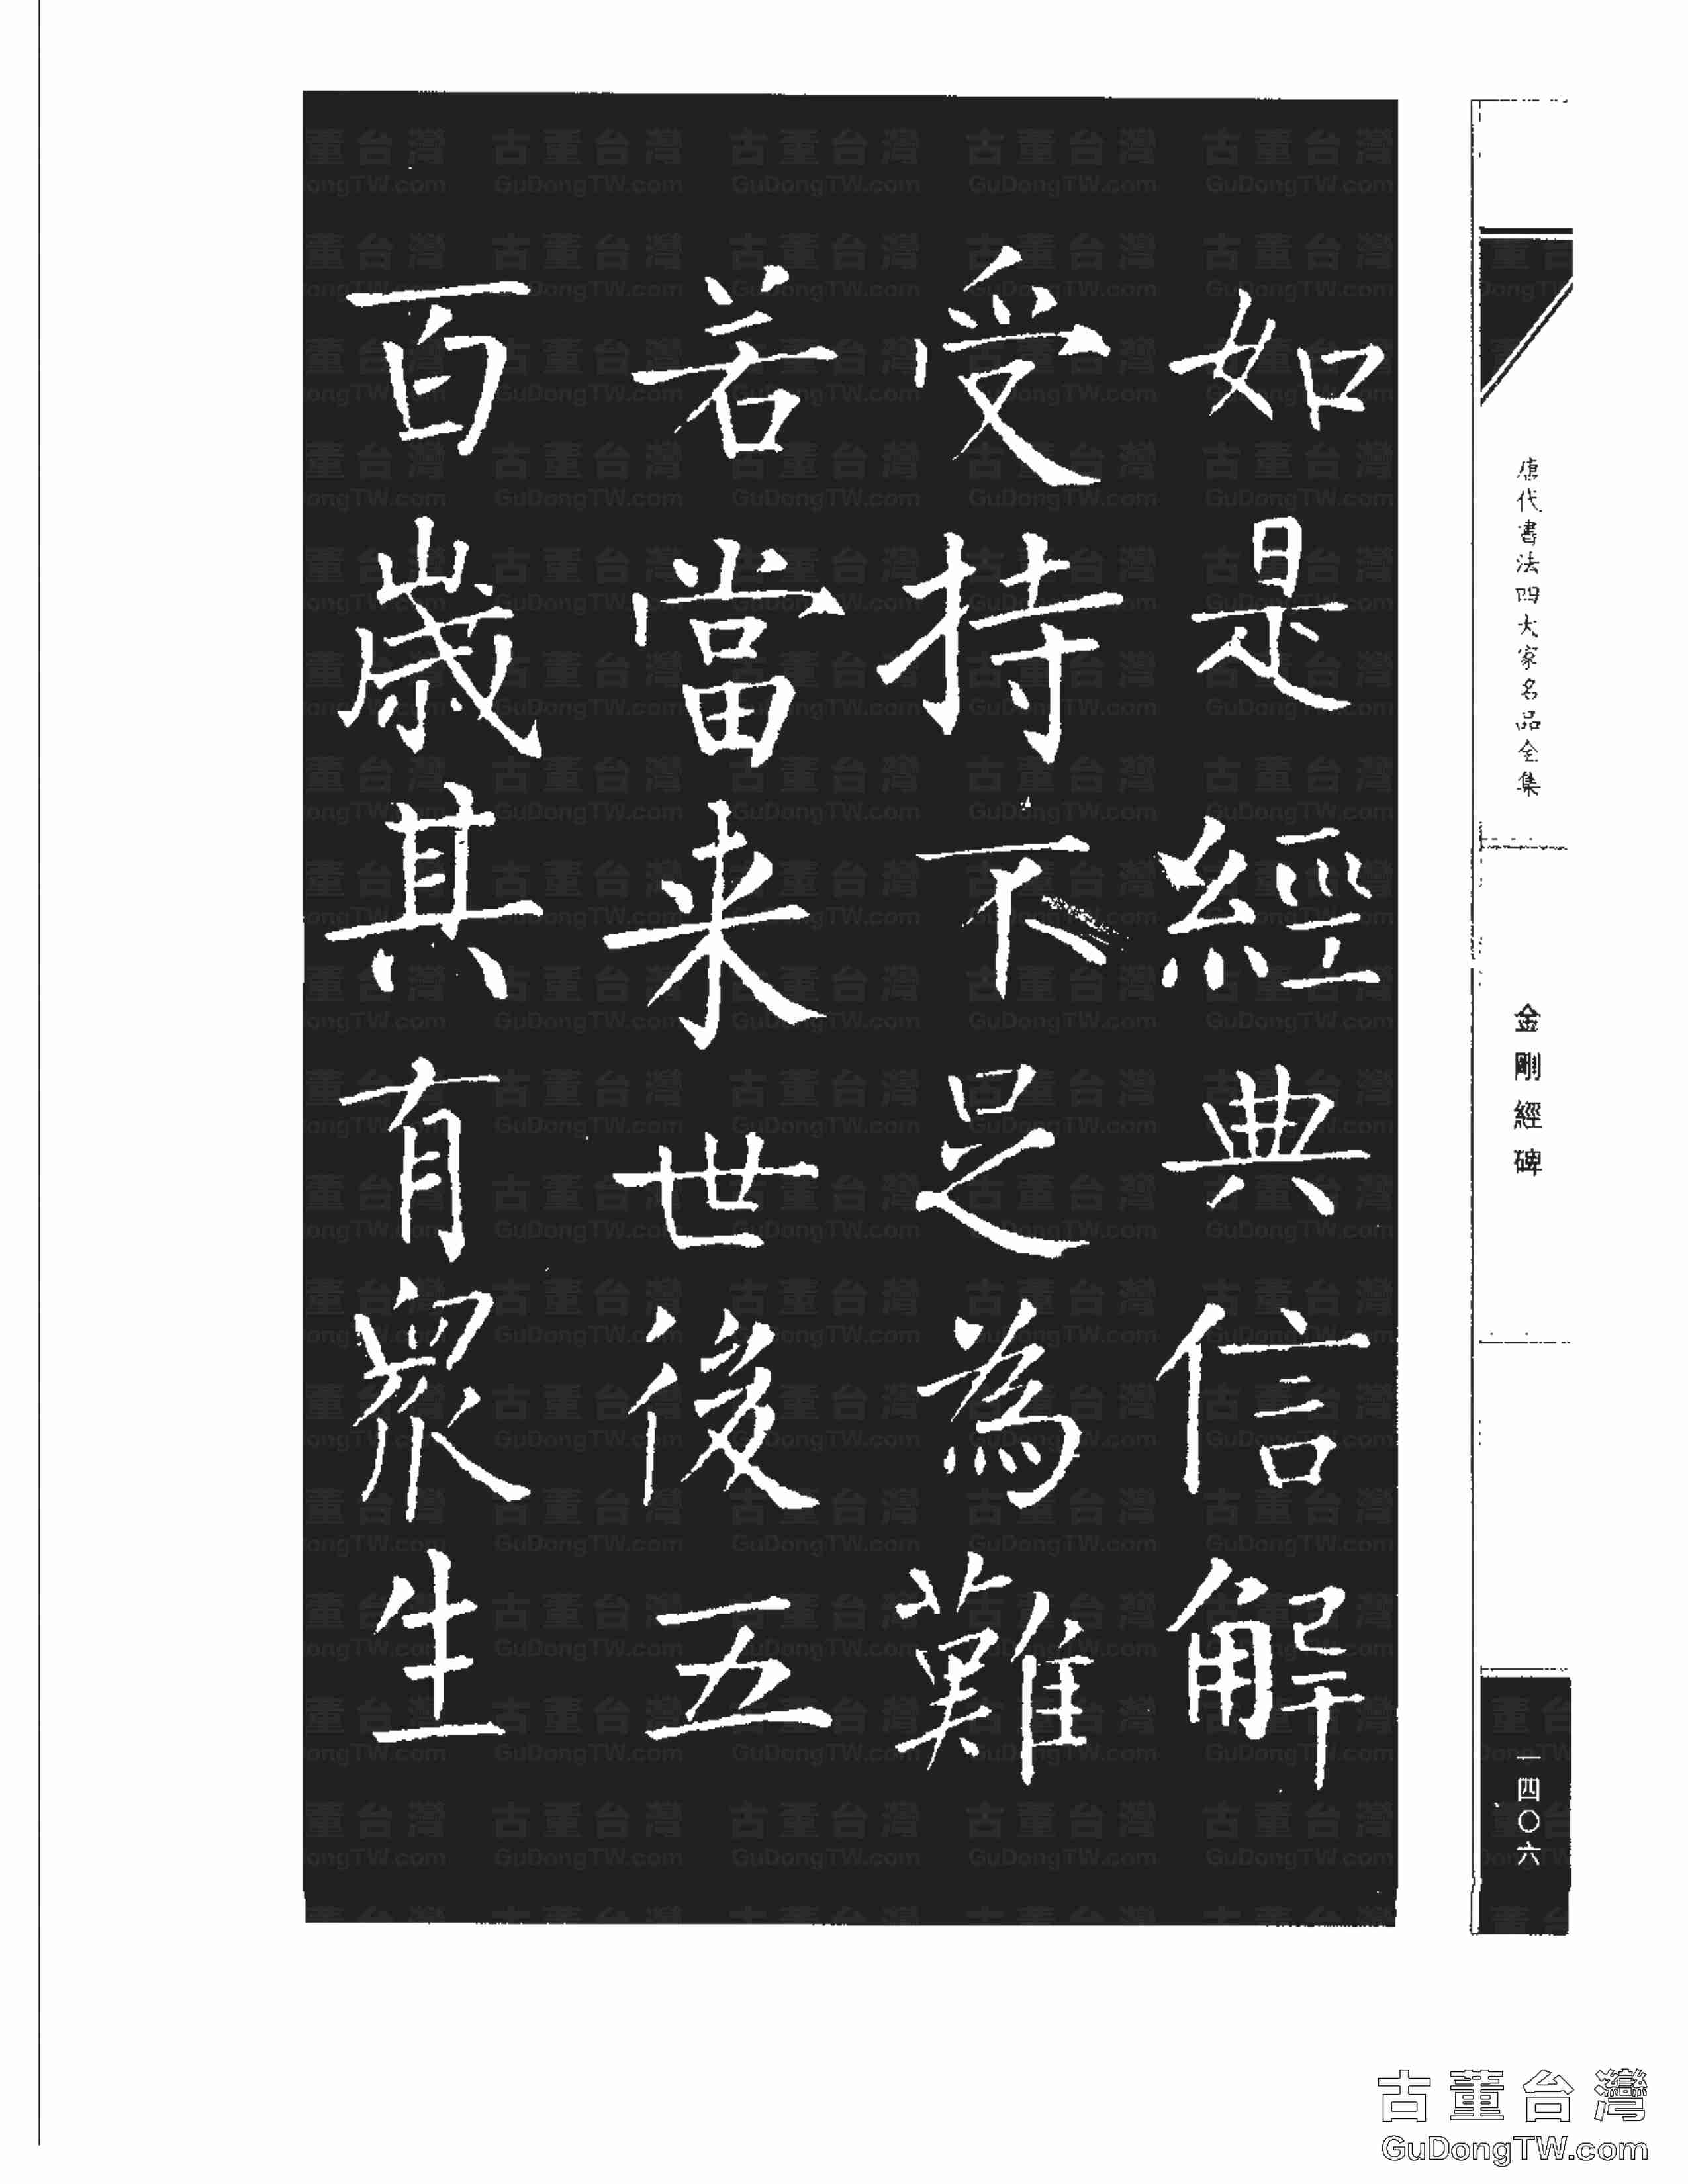 如是經典信解
受持不足為難
若當来世後五
百歲其有眾生
唐代書法四大家名品全集
金剛經碑
一四〇六
古董台灣
GuDongTW.com